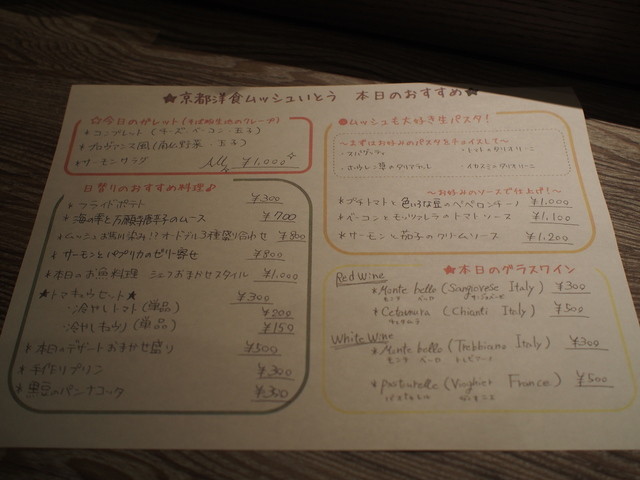 ★京都洋食ムッシュいとう 本日のおすすめ★
☆今日のガレット(そば粉生地のクレープ)
*コンプレット(チーズ・ベーコン・玉子)
*プロヴァンス風(南仏野菜・玉子)
*サーモンサラダ
All ¥1,000
日替りのおすすめ料理♪
*フライドポテト ¥300
*海の幸と万願寺唐辛子のムース ¥700
*ムッシュお馴染み!?オードブル3種盛り合わせ ¥800
*サーモンとパプリカのゼリー寄せ ¥800
*本日のお魚料理 シェフおまかせスタイル ¥1,000
★トマキュウセット★ ¥300
:冷やしトマト(単品) ¥200
:冷やしキュウリ(単品) ¥150
*本日のデザートおまかせ盛り ¥500
*手作りプリン ¥300
*黒豆のパンナコッタ ¥350
●ムッシュも大好き生パスタ!
〜まずはお好みのパスタをチョイスして〜
・スパゲッティ
・トマトのタリオリーニ
・ホウレン草のタリアテッレ
・イカスミのタリオリーニ
〜お好みのソースで仕上げ!〜
*プチトマトと色いろな豆のペペロンチーノ ¥1,000
*ベーコンとモッツァレラのトマトソース ¥1,100
*サーモンと茄子のクリームソース ¥1,200
★本日のグラスワイン
Red Wine
*Monte bello (Sangiovese Italy) ¥300
モンテ ベーロ サンジョベーゼ
*Cetamura (Chianti Italy) ¥500
チェタムーラ
White Wine
*Monte bello (Trebbiano Italy) ¥300
モンテ ベーロ トレビアーノ
*Pastourelle (Viognier France) ¥500
パストゥレル ヴィオニエ